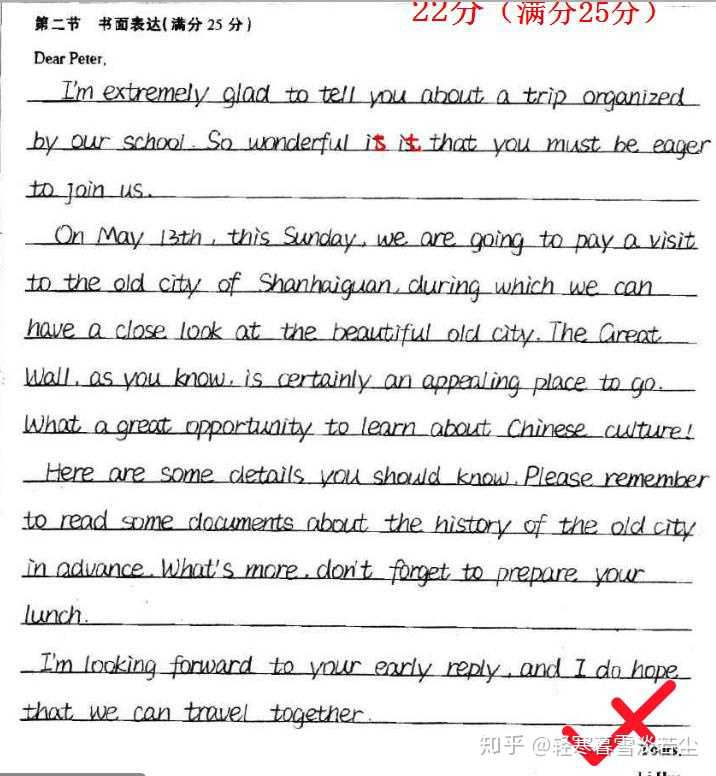 22分（满分25分）
第二节 书面表达(满分 25 分)
Dear Peter,
I'm extremely glad to tell you about a trip organized
by our school. So wonderful is it that you must be eager
to join us.
On May 13th, this Sunday, we are going to pay a visit
to the old city of Shanhaiguan, during which we can
have a close look at the beautiful old city. The Great
Wall, as you know, is certainly an appealing place to go.
What a great opportunity to learn about Chinese culture!
Here are some details you should know. Please remember
to read some documents about the history of the old city
in advance. What's more, don't forget to prepare your
lunch.
I'm looking forward to your early reply, and I do hope
that we can travel together.
知乎 @轻寒暮雪
Yours,